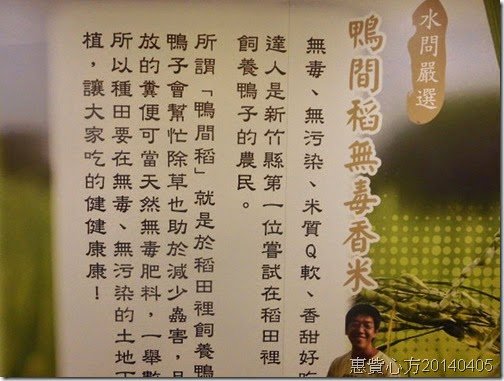 水問嚴選
鴨間稻無毒香米
無毒、無污染、米質Q軟、香甜好吃
達人是新竹縣第一位嘗試在稻田裡
飼養鴨子的農民。
所謂「鴨間稻」就是於稻田裡飼養鴨
鴨子會幫忙除草也助於減少蟲害，且
放的糞便可當天然無毒肥料，一舉數
所以種田要在無毒、無污染的土地下
植，讓大家吃的健健康康！
惠眥心方20140405